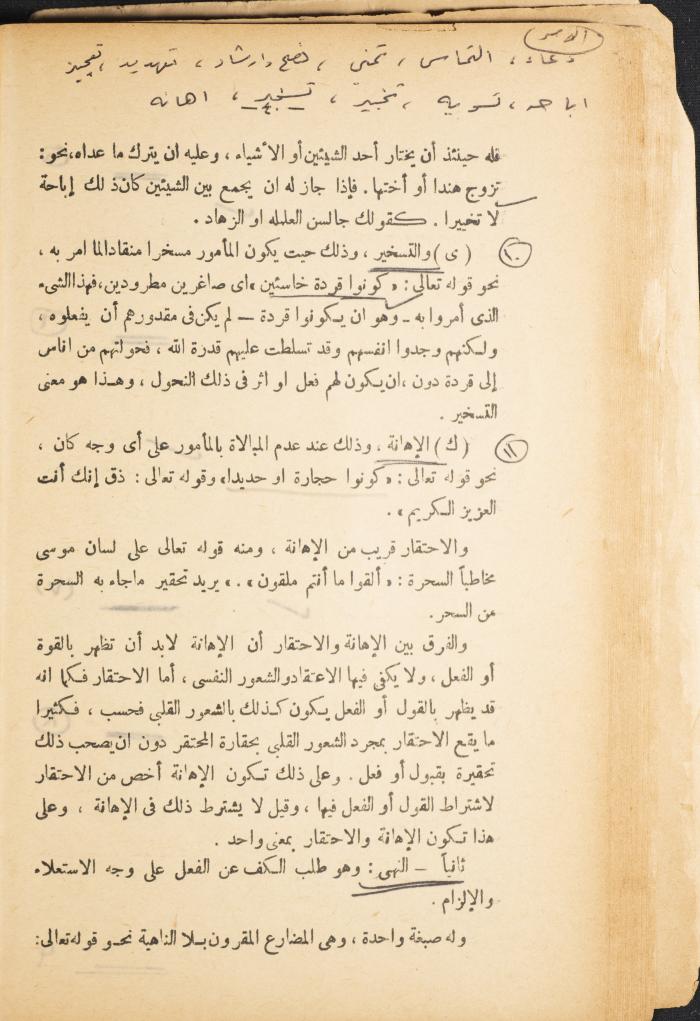 الأمر
دعاء، التماس، تمني، نصح وارشاد، تهديد، تعجيز
اباحه، تسويه، تخيير، تسخير، اهانه
فله حينئذ أن يختار أحد الشيئين أو الأشياء ، وعليه ان يترك ما عداه،نحو:
تزوج هندا أو أختها . فإذا جاز له ان يجمع بين الشيئين كان ذلك إباحة
لا تخييرا . كقولك جالس العلماء او الزهاد .
١٠ ( ى ) والتسخير ، وذلك حيث يكون المأمور مسخرا منقادا لما امر به ،
نحو قوله تعالى : « كونوا قردة خاسئين »اى صاغرين مطرودين،فهذا الشىء
الذى أمروا به ـ وهو ان يكونوا قردة ــ لم يكن فى مقدورهم أن يفعلوه ،
ولكنهم وجدوا انفسهم وقد تسلطت عليهم قدرة الله ، فحولتهم من اناس
إلى قردة دون ،ان يكون لهم فعل او اثر فى ذلك التحول ، وهذا هو معنى
التسخير .
١١ ( ك ) الإهانة ، وذلك عند عدم المبالاة بالمأمور على أى وجه كان ،
نحو قوله تعالى : « كونوا حجارة او حديدا» وقوله تعالى : ذق إنك أنت
العزيز الكريم » .
والاحتقار قريب من الإهانة ، ومنه قوله تعالى على لسان موسى
مخاطباً السحرة : « ألقوا ما أنتم ملقون » . » يريد تحقير ماجاء به السحرة
من السحر .
والفرق بين الإهانة والاحتقار أن الإهانة لابد أن تظهر بالقوة
أو الفعل ، ولا يكفى فيها الاعتقاد والشعور النفسى ، أما الاحتقار فكما انه
قد يظهر بالقول أو الفعل يكون كذلك بالشعور القلبى فحسب ، فكثيرا
ما يقع الاحتقار بمجرد الشعور القلبى بحقارة المحتقر دون ان يصحب ذلك
تحقيرة بقبول أو فعل . وعلى ذلك تكون الإهانة أخص من الاحتقار
لاشتراط القول أو الفعل فيها ، وقيل لا يشترط ذلك فى الإهانة ، وعلى
هذا تكون الإهانة والاحتقار بمعنى واحد .
ثانياً ــ النهى : وهو طلب الكف عن الفعل على وجه الاستعلاء
والإلزام .
وله صيغة واحدة ، وهى المضارع المقرون بلا الناهية نحو قوله تعالى: